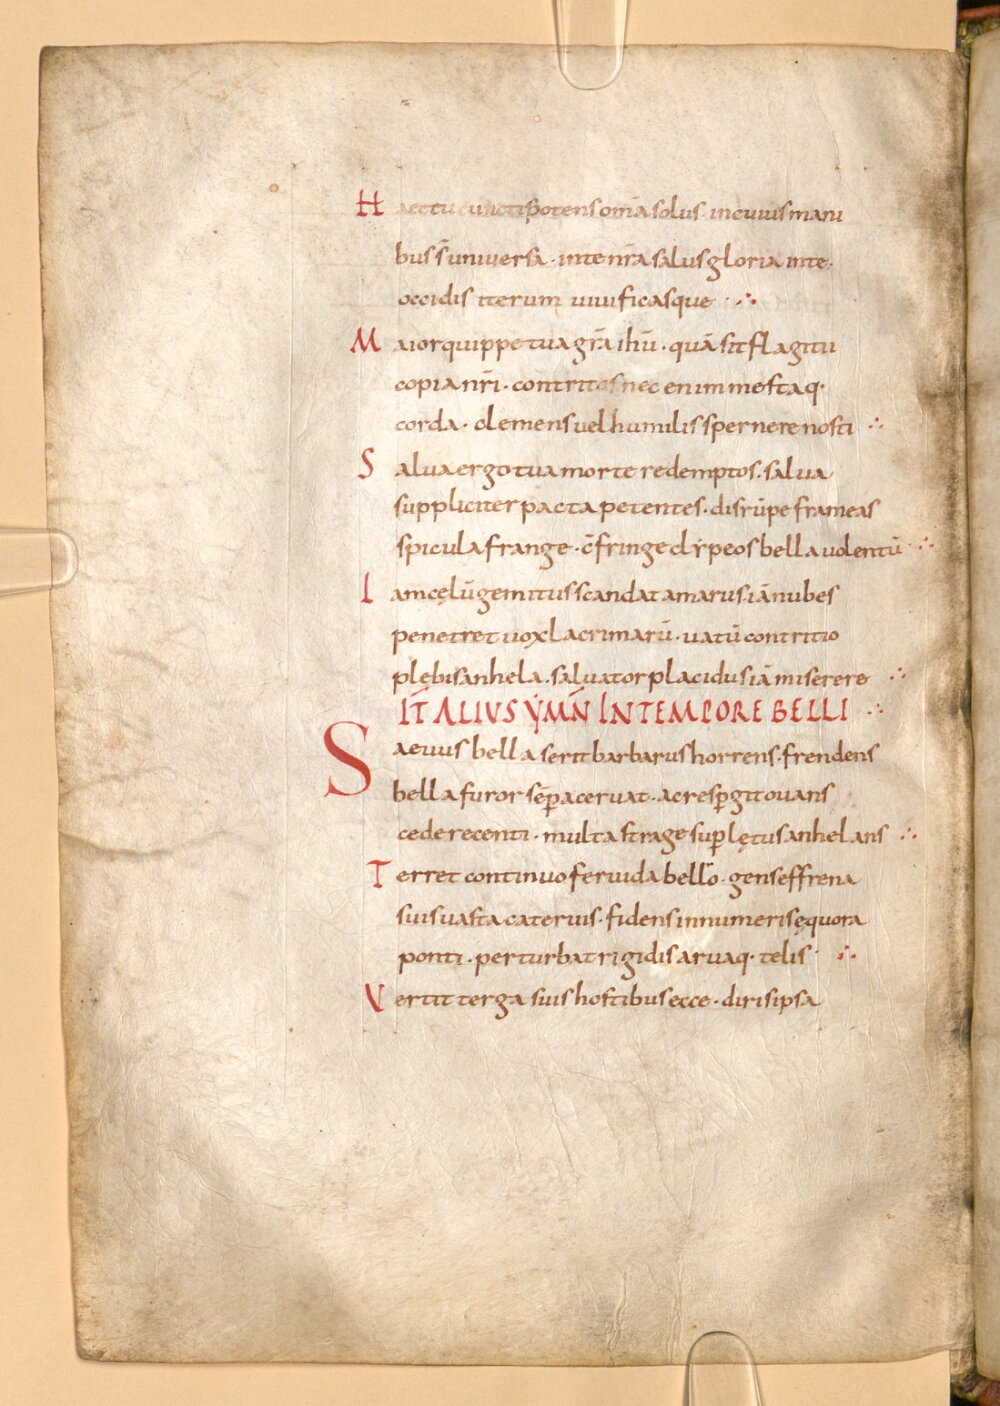 Haec tu cunctipotens om̄a solus incuius manu
bus s̄ uniuersa · inte nr̄a salus gloria inte ·
occidis iterum uiuificasque ·
Maior quippe tua gr̄a ihū · quā sit flagitii
copia nr̄i · contritos nec enim mestaq·
corda · clemens uel humilis spernere nosti
Salua ergo tua morte redemptos · salua
suppliciter pacta petentes · disrūpe frameas
spicula frange · c̄fringe clẏpeos bella uolentū
Iam cęlū gemitus scandat amarus · iā nubes
penetret uox lacrimarū · uatū contritio
plębis anhela · saluator placidus iā miserere
IT̄ ALIUS ẎMN̄ IN TEMPORE BELLI
Saeuus bella serit barbarus horrens · frendens
bella furor sēp aceruat · ac resp̱git ouans
cede recenti · multa strage sup̱ lętus anhelans
Terret continuo feruida bello · gens effrena
suis uasta cateruis · fidens innumeris ęquora
ponti · perturbat rigidis aruaq· telis ·
Vertit terga suis hostibus ecce · diris ipsa